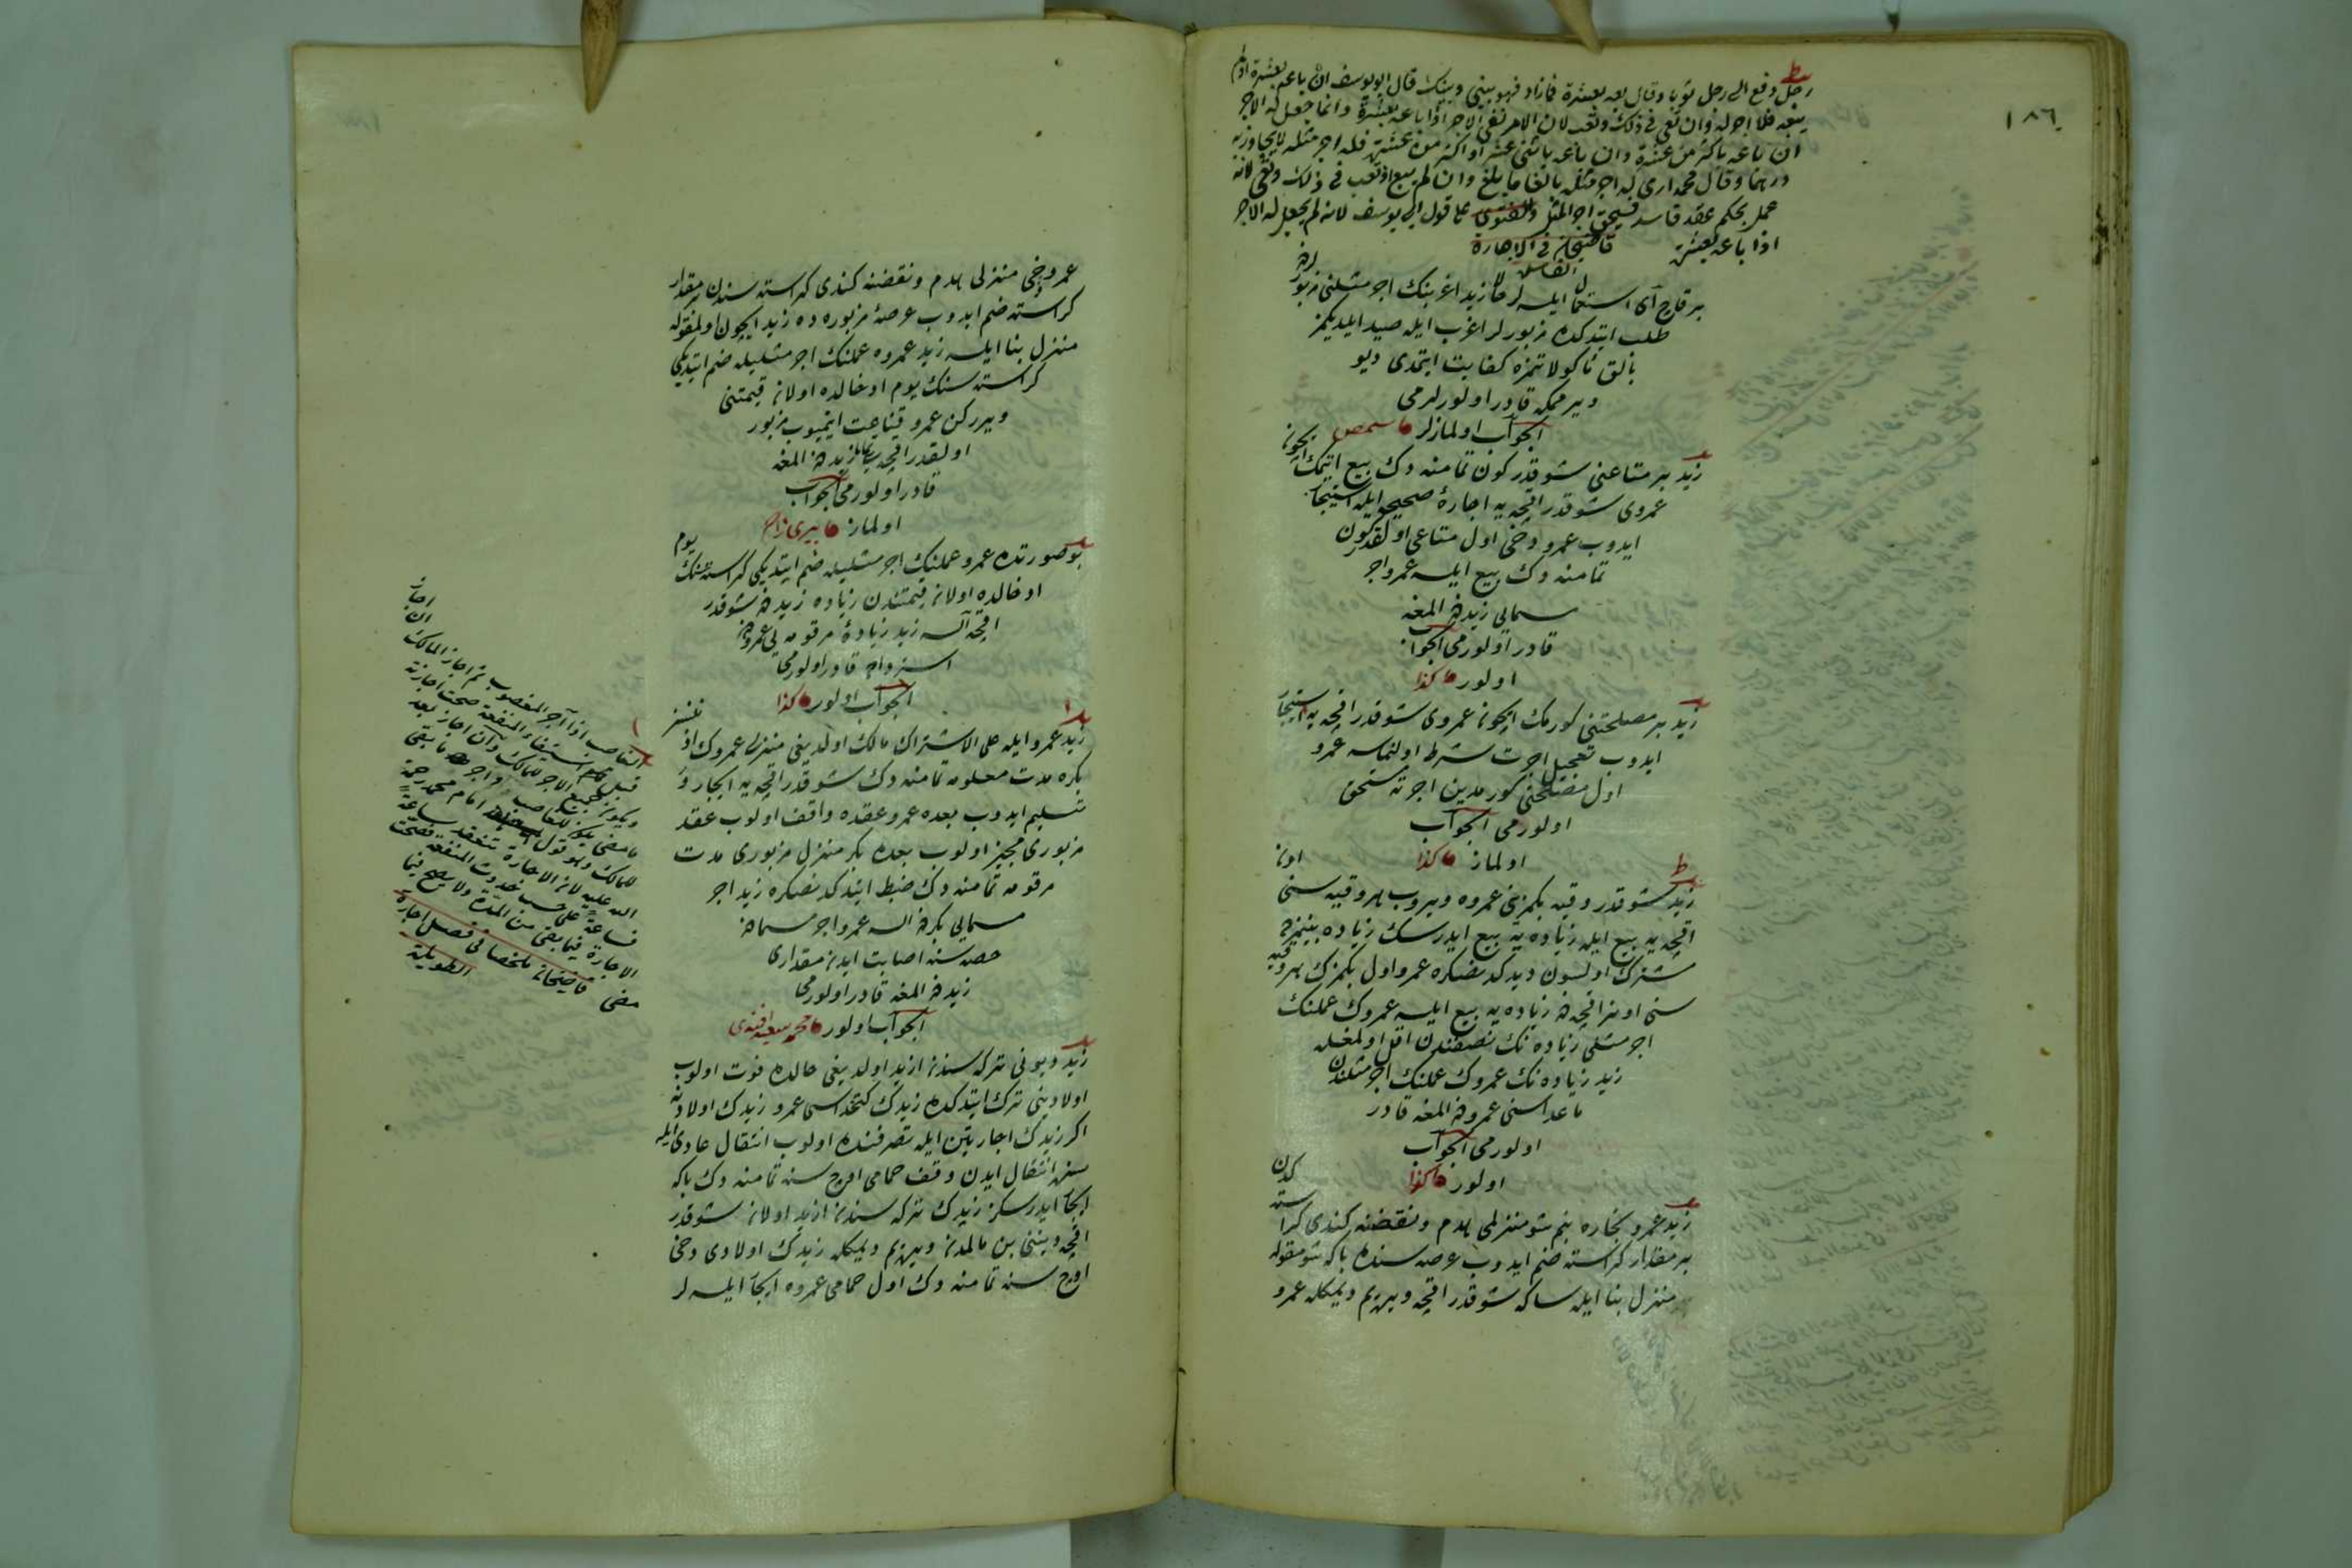 ١٨٦
رجل دفع الى رجل ثوبا وقال بعه بعشرة فما زاد فهو بيني وبينك قال ابو يوسف ان باعه بعشرة او لم
يبعه فلا اجر له وان تعب فى ذلك لان الامر نفى الاجر اذا باعه بعشرة وانما جعل له الاجر
ان باعه باكثر من عشرة وان باعه باثنى عشر او اكثر من عشرة فله اجر مثله لا يجاوز به
درهما وقال محمد ارى له اجر مثله بالغا ما بلغ وان لم يبع اذا تعب فى ذلك لانه
عمل بحكم عقد فاسد فيستحق اجر المثل والفتوى على قول ابى يوسف لانه لم يجعل له الاجر
اذا باعه بعشرة قاضيخان فى الاجارة
بر قاچ آى استعمال ايلسه لر حالا زيد اغرينك اجر مثلنى مزبورلردن
طلب ايتدكده مزبورلر اغرب ايله صيد ايلديكمز
بالق مأكولاتمزه كفايت ايتمدى ديو
ويرممكه قادر اولورلرمى
الجواب اولمازلر
زيد بر متاعنى شو قدر كون تمامنه دك بيع ايتمك ايچون
عمروى شو قدر اقچه يه اجارهٔ صحيحه ايله استيجار
ايدوب عمرو دخى اول متاعى اولقدر كون
تمامنه دك بيع ايلسه عمرو اجر
مسمايى زيددن المغه
قادر اولورمى الجواب
اولور كذا
زيد بر مصلحتنى كورمك ايچون عمروى شو قدر اقچه يه استيجار
ايدوب تعجيل اجرت شرط اولنماسه عمرو
اول مصلحتى كورمدين اجرته مستحق
اولورمى الجواب
اولماز كذا
زيد شو قدر وقيه پكمزينى عمروه ويروب هر وقيه سنى اون
اقچه يه بيع ايله زياده يه بيع ايدرسك زياده بينمزده
مشترك اولسون ديدكدنصكره عمرو اول پكمزك هر وقيه
سنى اون اقچه دن زياده يه بيع ايلسه عمروك عملنك
اجر مثلى زياده نك نصفندن اقل اولمغله
زيد زياده نك عمروك عملنك اجر مثلندن
ماعداسنى عمرودن المغه قادر
اولورمى الجواب
اولور كذا
زيد عمرو نجاره بنم شو منزلمى هدم ونقضنه كندى كراسته كدن
بر مقدار كراسته ضم ايدوب عرصه سنده بكا شو مقوله
منزل بنا ايله سكا شو قدر اقچه ويريرم ديمكله عمرو
عمرو دخى منزلى هدم ونقضنه كندى كراسته سندن بر مقدار
كراسته ضم ايدوب عرصهٔ مزبوره ده زيد ايچون اولمقوله
منزل بنا ايلسه زيد عمروه عملنك اجر مثليله ضم ايتديكى
كراسته سنك يوم ادخالده اولان قيمتنى
ويرركن عمرو قناعت ايتميوب مزبور
اولقدر اقچه يى زيددن المغه
قادر اولورمى الجواب
اولماز
بو صورتده عمرو عملنك اجر مثليله ضم ايتديكى كراسته سنك يوم
ادخالده اولان قيمتندن زياده زيددن شو قدر
اقچه آلسه زيد زيادهٔ مرقومه يى عمرودن
استرداده قادر اولورمى
الجواب اولور كذا
زيد عمرو ايله على الاشتراك مالك اولديغى منزلى عمروك اذنسز
بكره مدت معلومه تمامنه دك شو قدر اقچه يه ايجار و
تسليم ايدوب بعده عمرو عقده واقف اولوب عقد
مزبورى مجيز اولوب بعده بكر منزل مزبورى مدت
مرقومه تمامنه دك ضبط ايتدكدنصكره زيد اجر
مسمايى بكردن السه عمرو اجر مسمادن
حصه سنه اصابت ايدن مقدارى
زيددن المغه قادر اولورمى
الجواب اولور محمد سعيد افندى
زيد ديونى تركه سندن ازيد اولديغى حالده فوت اولوب
اولادينى ترك ايتدكده زيدك كتخداسى عمرو زيدك اولادنه
اكر زيدك اجارتين ايله تصرفنده اولوب انتقال عادى ايله
سزه انتقال ايدن وقف حمامى اوچ سنه تمامنه دك بكا
ايجار ايدرسكز زيدك تركه سندن ازيد اولان شو قدر
اقچه دينى بن مالمدن ويريرم ديمكله زيدك اولادى دخى
اوچ سنه تمامنه دك اول حمامى عمروه ايجار ايلسه لر
الغاصب اذا آجر المغصوب ثم اجاز المالك ان اجاز
قبل استيفاء المنفعة صحت اجازته
ويكون جميع الاجر للمالك وان اجاز بعد
ما مضى يكون للغاصب واجر ما بقى
للمالك وهو قول امام محمد رحمة
الله عليه لان الاجارة تنعقد ساعة
فساعة على حسب حدوث المنفعة فصحت
الاجارة فيما بقى من المدة ولا يصح فيما
مضى قاضيخان ملخصا فى فصل اجارة
الطويلة